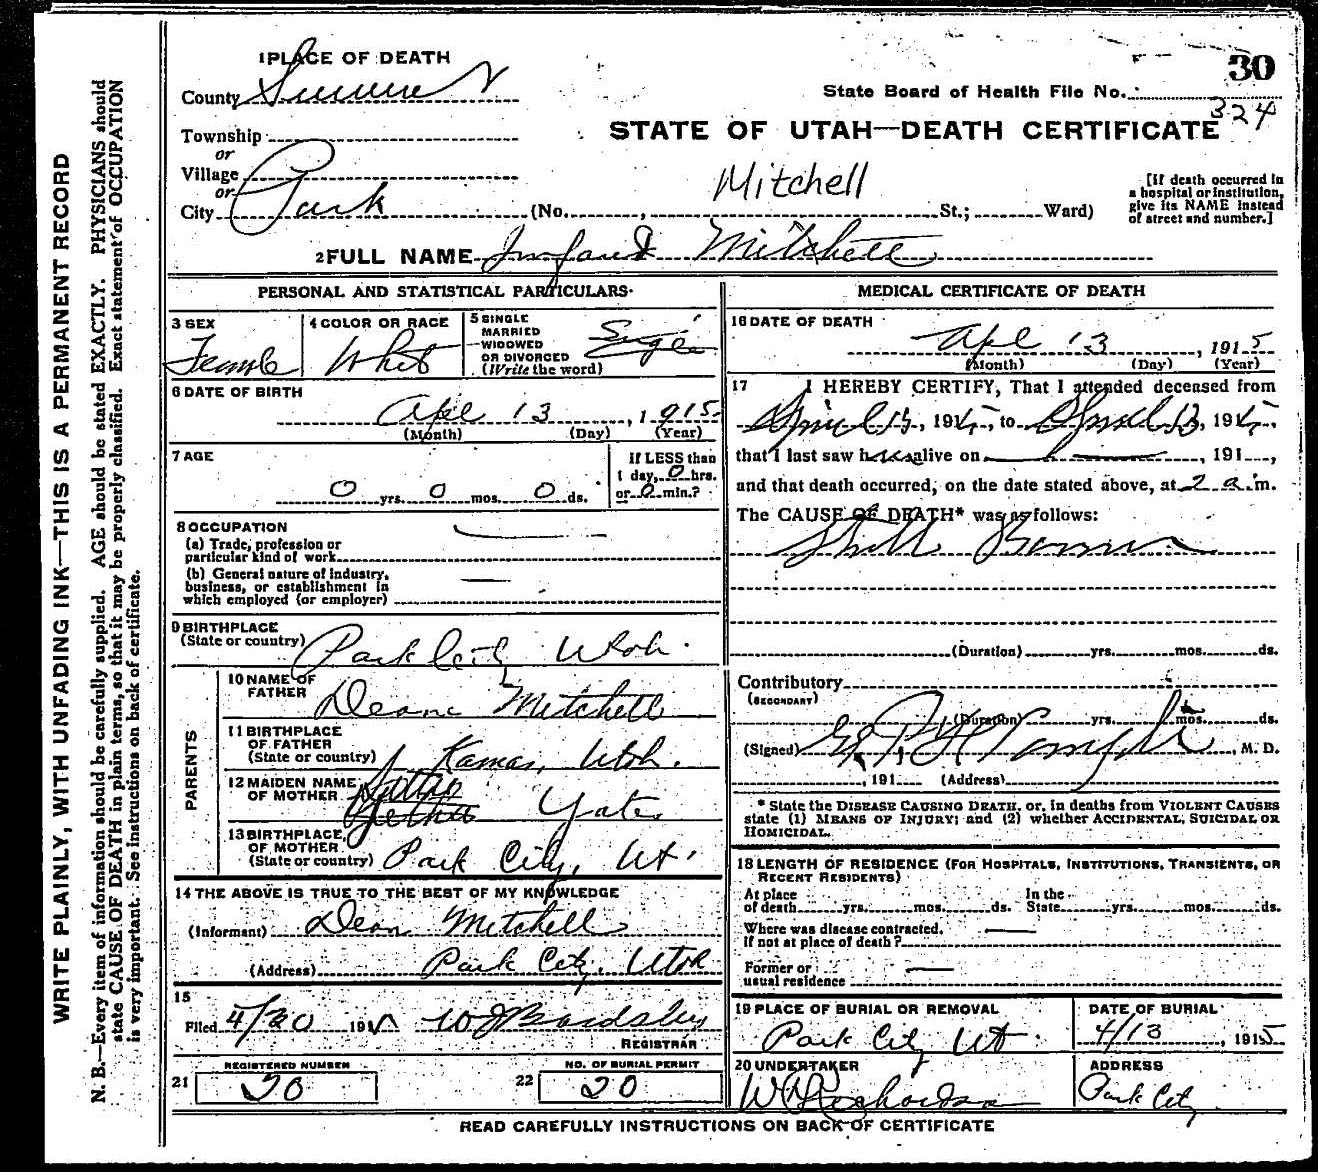 WRITE PLAINLY, WITH UNFADING INK—THIS IS A PERMANENT RECORD
N. B.—Every item of information should be carefully supplied. AGE should be stated EXACTLY. PHYSICIANS should
state CAUSE OF DEATH in plain terms, so that it may be properly classified. Exact statement of OCCUPATION
is very important. See instructions on back of certificate.
1 PLACE OF DEATH
30
County Summit
State Board of Health File No.
324
Township
STATE OF UTAH—DEATH CERTIFICATE
or
Village
Mitchell
or
City Park (No. , St.; Ward)
[If death occurred in
a hospital or institution,
give its NAME instead
of street and number.]
2 FULL NAME Infant Mitchell
PERSONAL AND STATISTICAL PARTICULARS
3 SEX Female
4 COLOR OR RACE White
5 SINGLE
MARRIED
WIDOWED
OR DIVORCED
(Write the word)
Single
6 DATE OF BIRTH
Apr 13, 1915
(Month) (Day) (Year)
7 AGE
0 yrs. 0 mos. 0 ds.
If LESS than
1 day, 0 hrs.
or 0 min.?
8 OCCUPATION
(a) Trade, profession or
particular kind of work
(b) General nature of industry,
business, or establishment in
which employed (or employer)
9 BIRTHPLACE
(State or country) Park City Utah.
PARENTS
10 NAME OF
FATHER Mitchell
11 BIRTHPLACE
OF FATHER
(State or country) Kamas, Utah.
12 MAIDEN NAME
OF MOTHER Yates
13 BIRTHPLACE
OF MOTHER
(State or country) Park City, Ut.
14 THE ABOVE IS TRUE TO THE BEST OF MY KNOWLEDGE
(Informant) Mitchell
(Address) Park City, Utah
15
Filed 4/20 191
REGISTRAR
REGISTERED NUMBER
21 20
NO. OF BURIAL PERMIT
22 20
MEDICAL CERTIFICATE OF DEATH
16 DATE OF DEATH
Apr 13, 1915
(Month) (Day) (Year)
17 I HEREBY CERTIFY, That I attended deceased from
April, 1915, to April 13, 1915,
that I last saw h alive on , 191 ,
and that death occurred, on the date stated above, at 2 a. m.
The CAUSE OF DEATH* was as follows:
Still Born
(Duration) yrs. mos. ds.
Contributory
(SECONDARY)
(Duration) yrs. mos. ds.
(Signed) , M. D.
, 191 (Address)
* State the DISEASE CAUSING DEATH, or, in deaths from VIOLENT CAUSES
state (1) MEANS OF INJURY; and (2) whether ACCIDENTAL, SUICIDAL OR
HOMICIDAL.
18 LENGTH OF RESIDENCE (FOR HOSPITALS, INSTITUTIONS, TRANSIENTS, OR
RECENT RESIDENTS)
At place In the
of death yrs. mos. ds. State yrs. mos. ds.
Where was disease contracted,
If not at place of death?
Former or
usual residence
19 PLACE OF BURIAL OR REMOVAL
Park City Ut
DATE OF BURIAL
4/13, 1915
20 UNDERTAKER
ADDRESS
Park City
READ CAREFULLY INSTRUCTIONS ON BACK OF CERTIFICATE